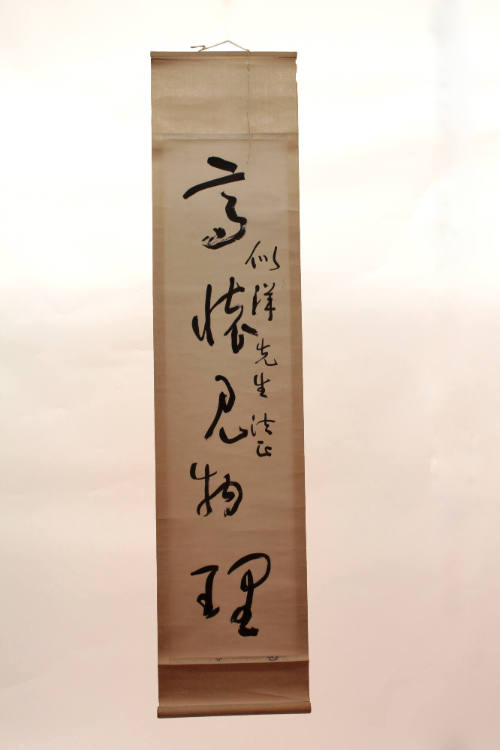 高懷見物理
似祥先生法正